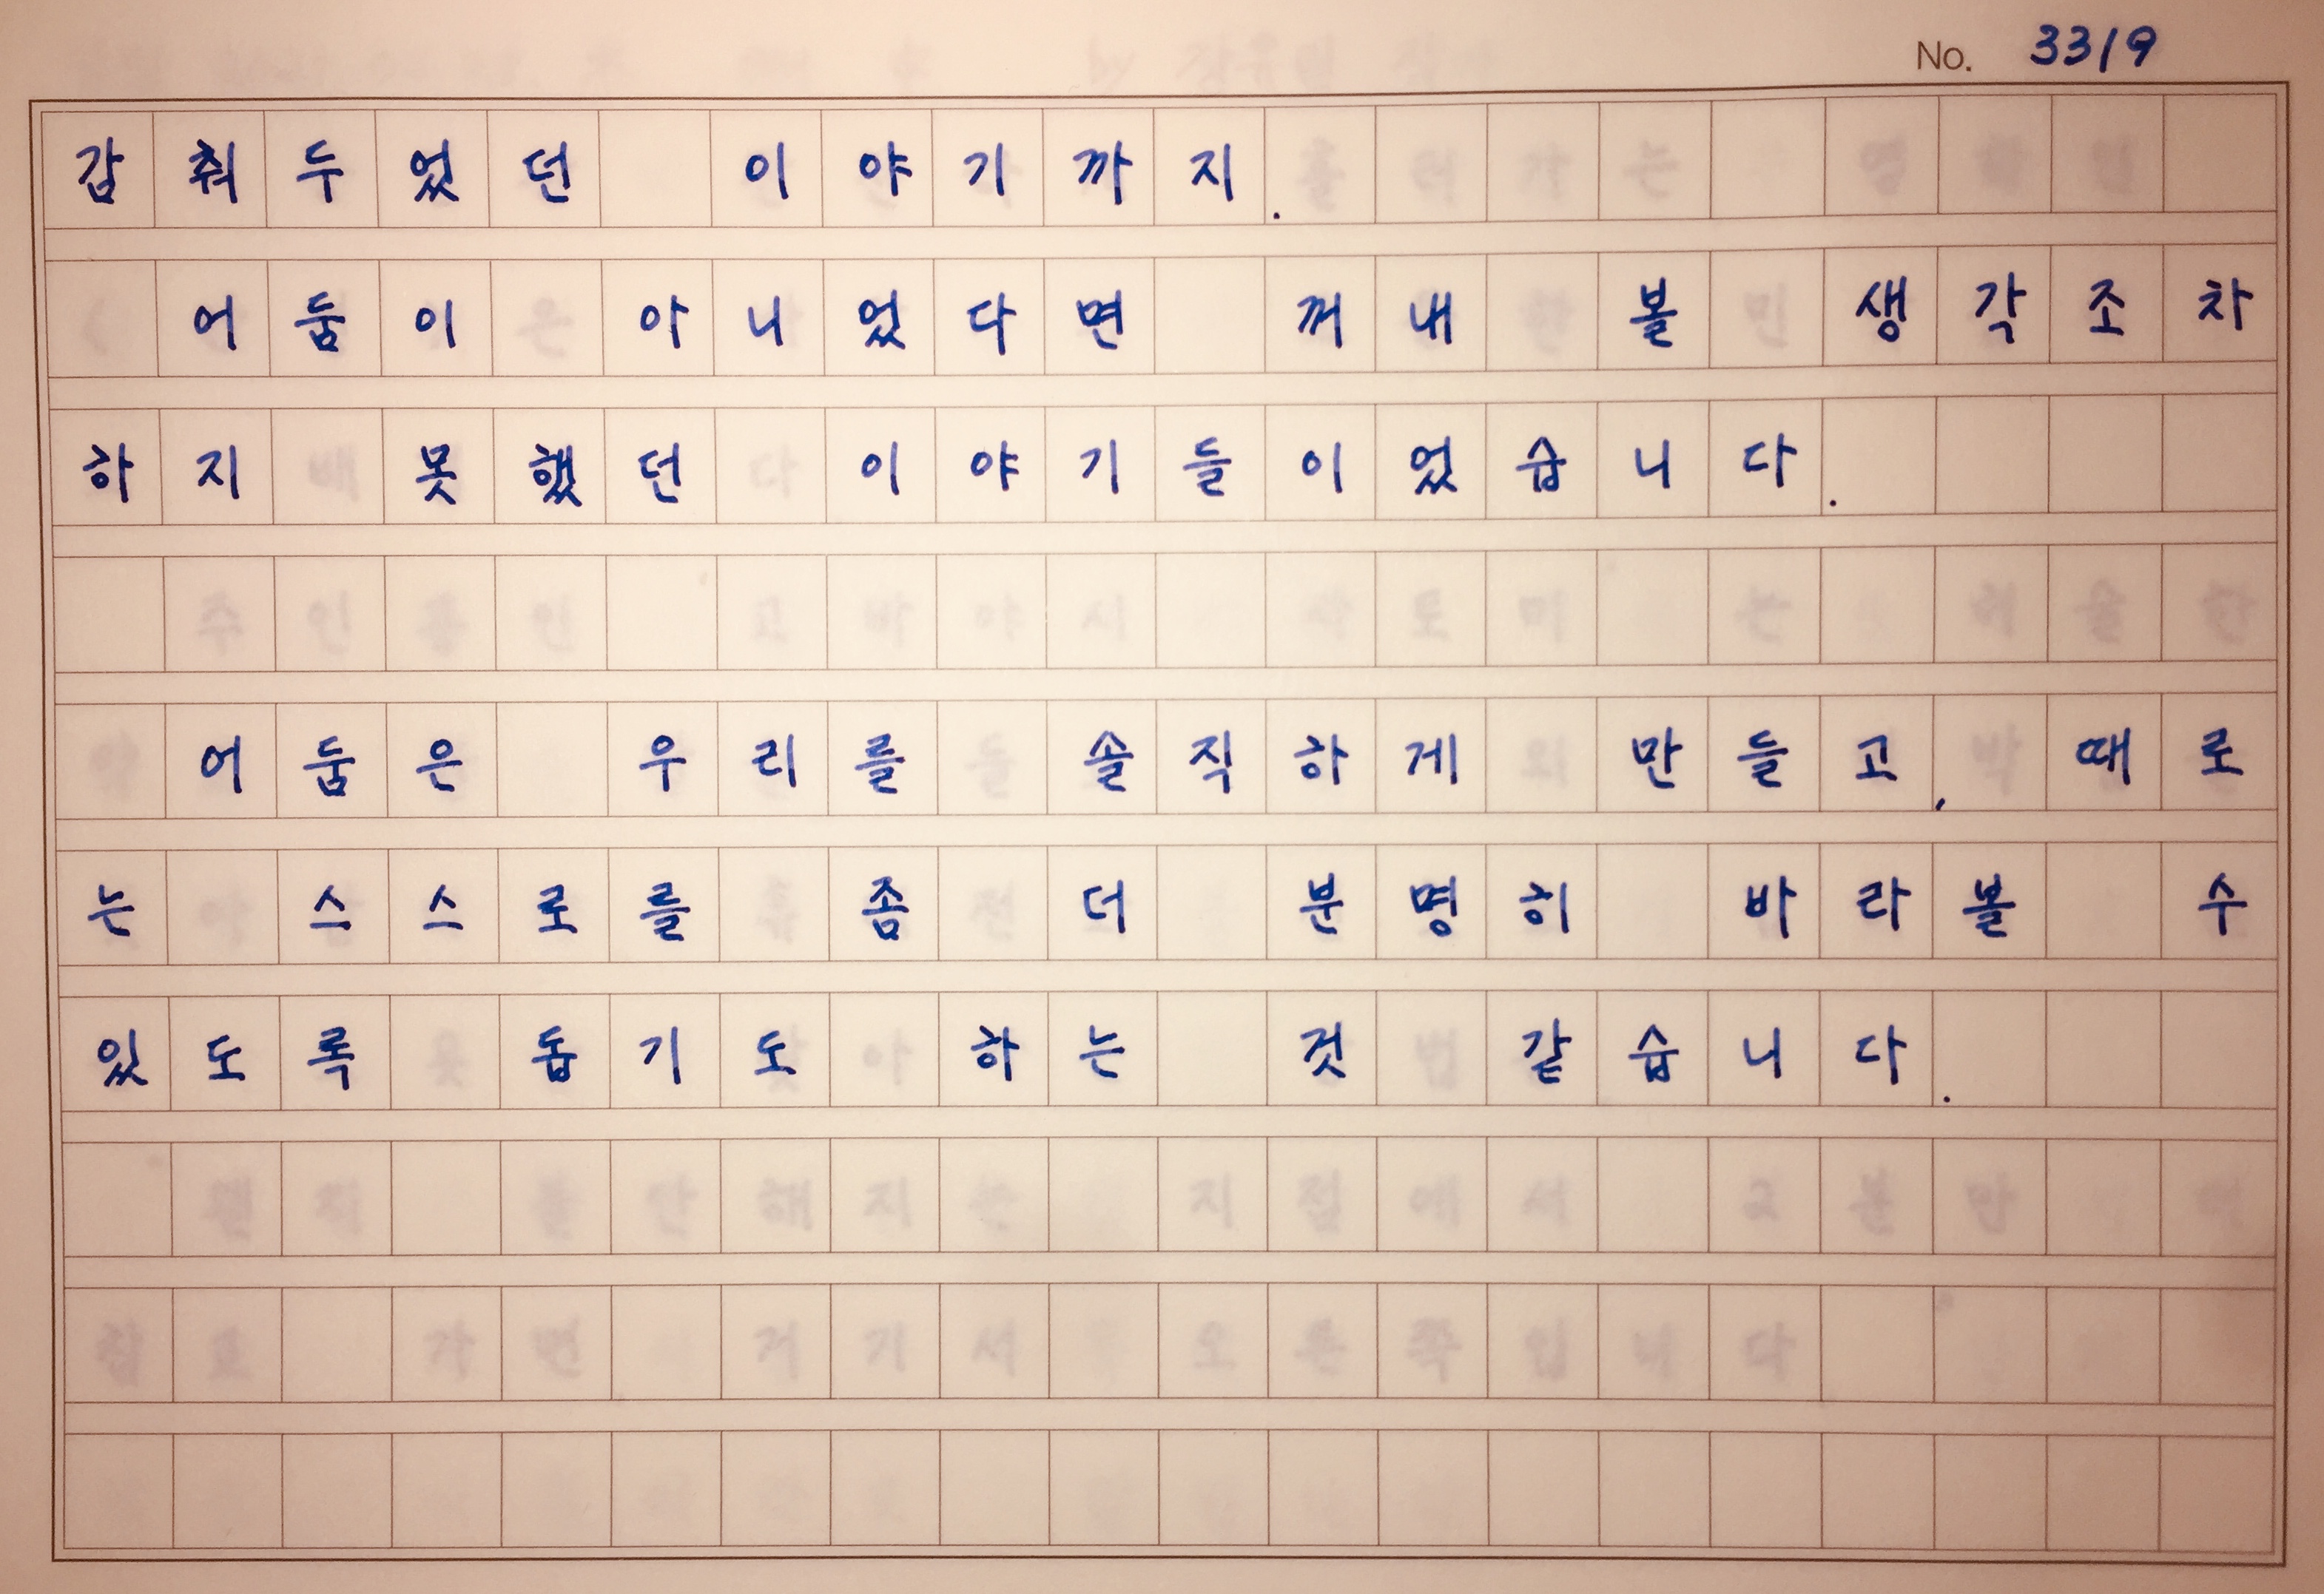 No. 3319
갑춰두었던 이야기까지.
어둠이 아니었다면 꺼내 볼 생각조차
하지 못했던 이야기들이었습니다.
어둠은 우리를 솔직하게 만들고, 때로
는 스스로를 좀 더 분명히 바라볼 수
있도록 돕기도 하는 것 같습니다.